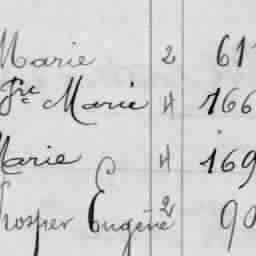 Marie 2 61
Marie 4 166
Marie 4 169
Prosper Eugène 2 90